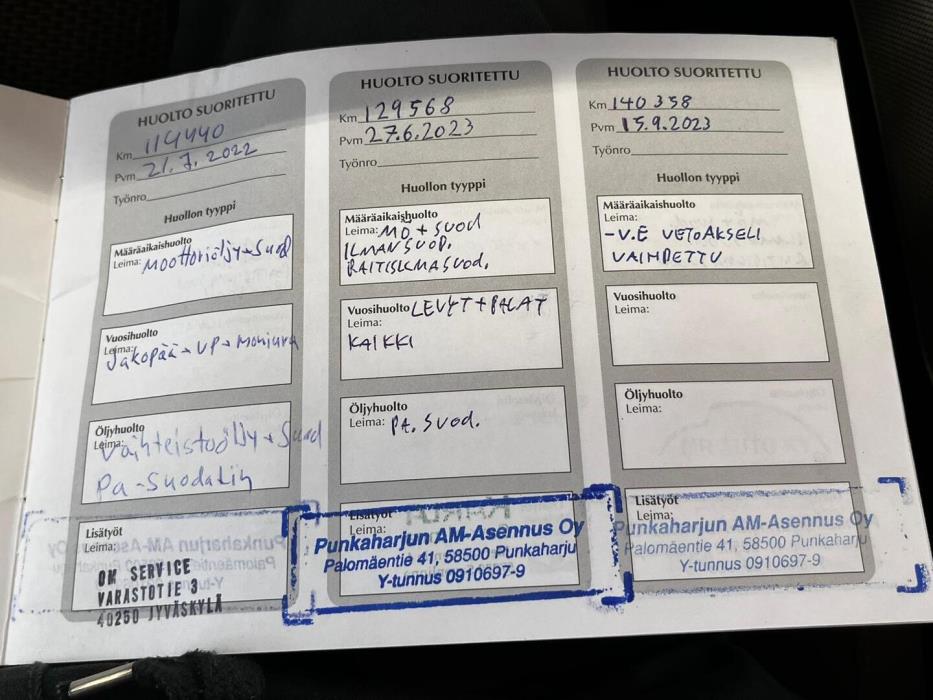 HUOLTO SUORITETTU
Km 114440
Pvm 21.7.2022
Työnro
Huollon tyyppi
Määräaikaishuolto
Leima: Moottoriöljy + Suod
Vuosihuolto
Leima: Jakopää + VP + Moniura
Öljyhuolto
Leima: Vaihteistoöljy + Suod
Pa-Suodatin
Lisätyöt
Leima:
OM SERVICE
VARASTOTIE 3
40250 JYVÄSKYLÄ
HUOLTO SUORITETTU
Km 129568
Pvm 27.6.2023
Työnro
Huollon tyyppi
Määräaikaishuolto
Leima: MÖ + SUOD
ILMANSUOD.
RAITISILMASUOD.
Vuosihuolto LEVYT + PALAT
Leima:
KAIKKI
Öljyhuolto
Leima: PA. SUOD.
Lisätyöt
Leima:
Punkaharjun AM-Asennus Oy
Palomäentie 41, 58500 Punkaharju
Y-tunnus 0910697-9
HUOLTO SUORITETTU
Km 140 358
Pvm 15.9.2023
Työnro
Huollon tyyppi
Määräaikaishuolto
Leima:
-V.E VETOAKSELI
VAIHDETTU
Vuosihuolto
Leima:
Öljyhuolto
Leima:
Lisätyöt
Leima:
Punkaharjun AM-Asennus Oy
Palomäentie 41, 58500 Punkaharju
Y-tunnus 0910697-9